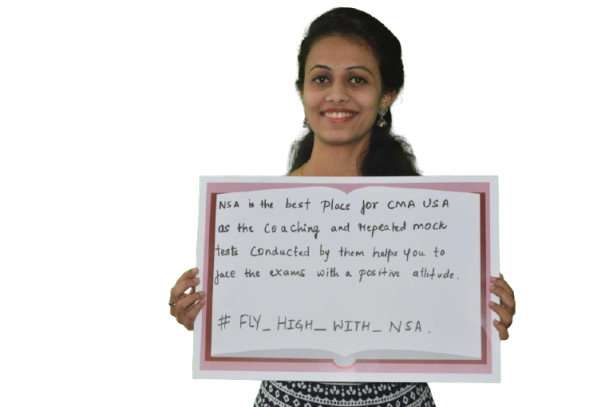 NSA is the best place for CMA USA
as the coaching and repeated mock
tests conducted by them helps you to
face the exams with a positive attitude.
# FLY_HIGH_WITH_NSA.